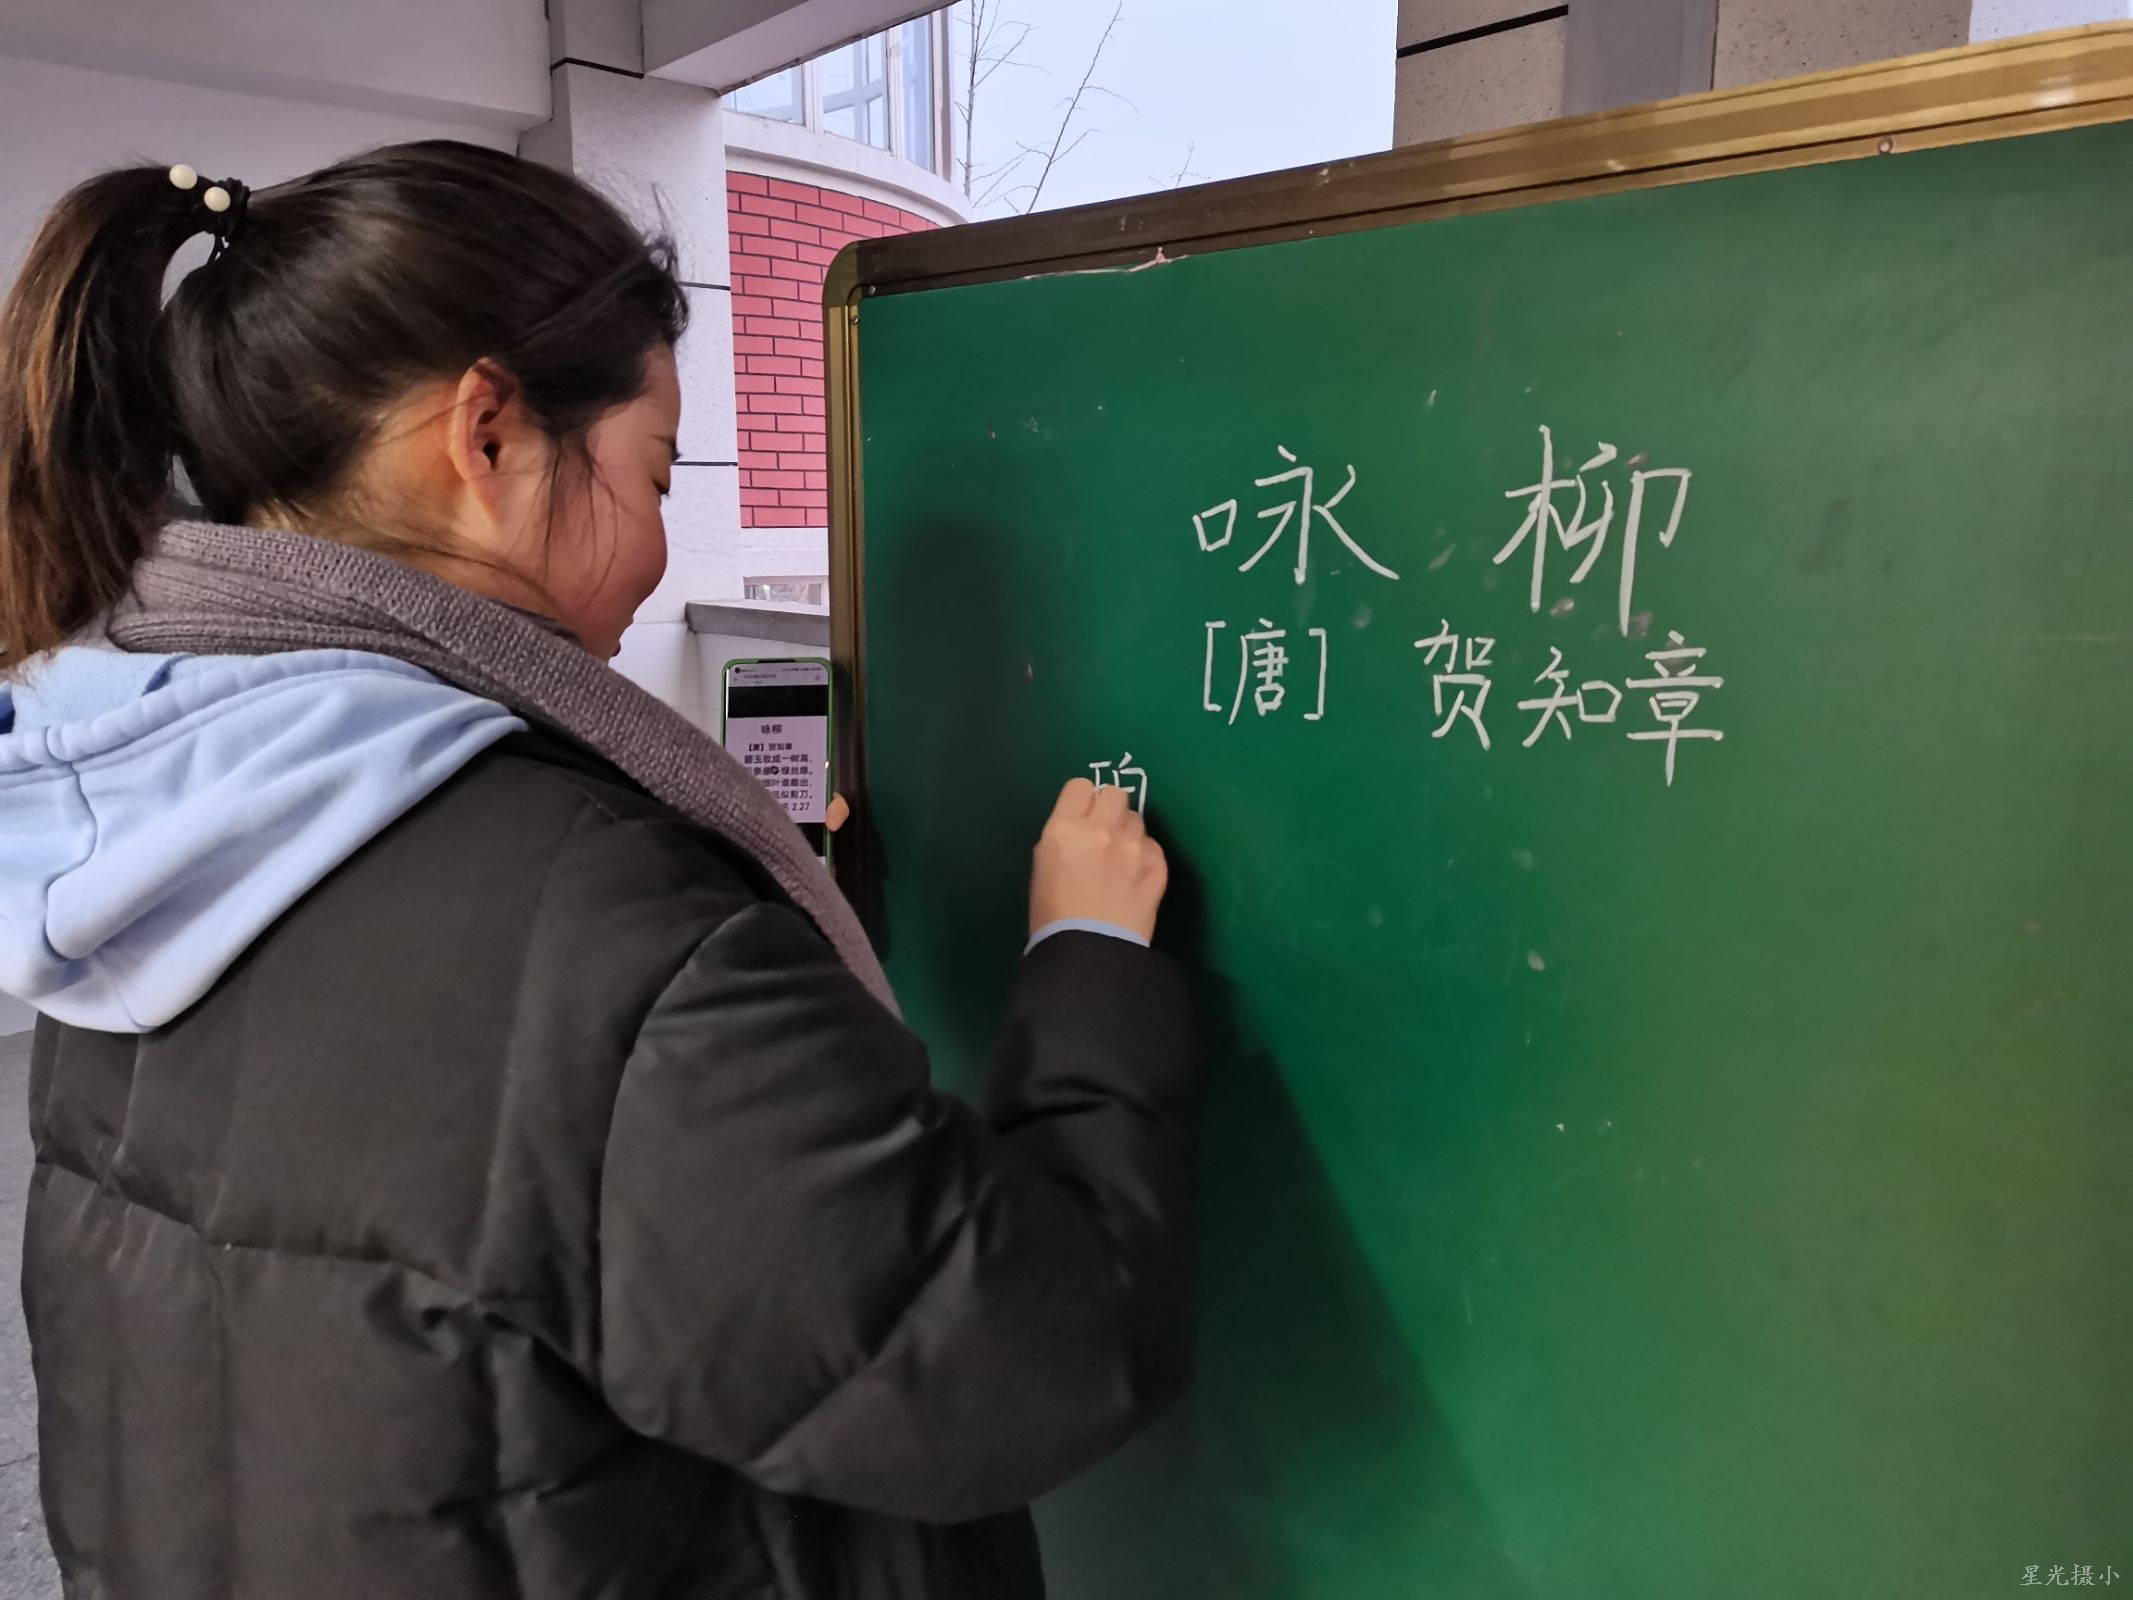 咏柳
[唐] 贺知章
珀
咏柳
【唐】贺知章
碧玉妆成一树高，
绿丝绦。
细叶谁裁出，
风似剪刀。
2.27
星光摄小